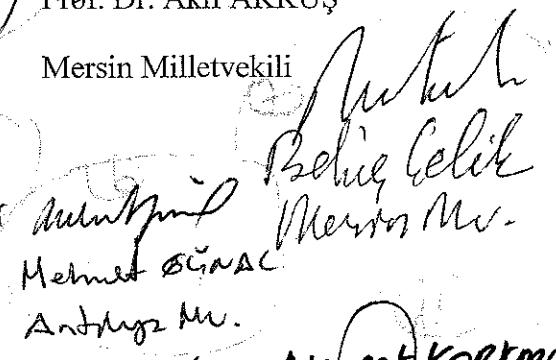 Prof. Dr. Akif AKKUŞ
Mersin Milletvekili
Behiç Çelik
Mersin Mv.
Mehmet GÜNAL
Antalya Mv.